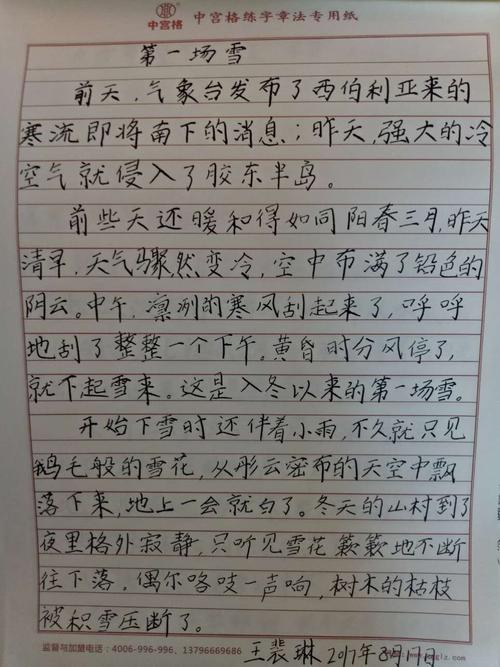 中宫格
中宫格练字章法专用纸
第一场雪
前天,气象台发布了西伯利亚来的
寒流即将南下的消息;昨天,强大的冷
空气就侵入了胶东半岛。
前些天还暖和得如同阳春三月,昨天
清早,天气骤然变冷,空中布满了铅色的
阴云。中午,凛冽的寒风刮起来了,呼呼
地刮了整整一个下午。黄昏时分风停了,
就下起雪来。这是入冬以来的第一场雪。
开始下雪时还伴着小雨,不久就只见
鹅毛般的雪花,从彤云密布的天空中飘
落下来,地上一会就白了。冬天的山村到了
夜里格外寂静,只听见雪花簌簌地不断
往下落,偶尔咯吱一声响,树木的枯枝
被积雪压断了。
监督与加盟电话:4006-996-996、13796669686
王裴琳 2017年8月17日